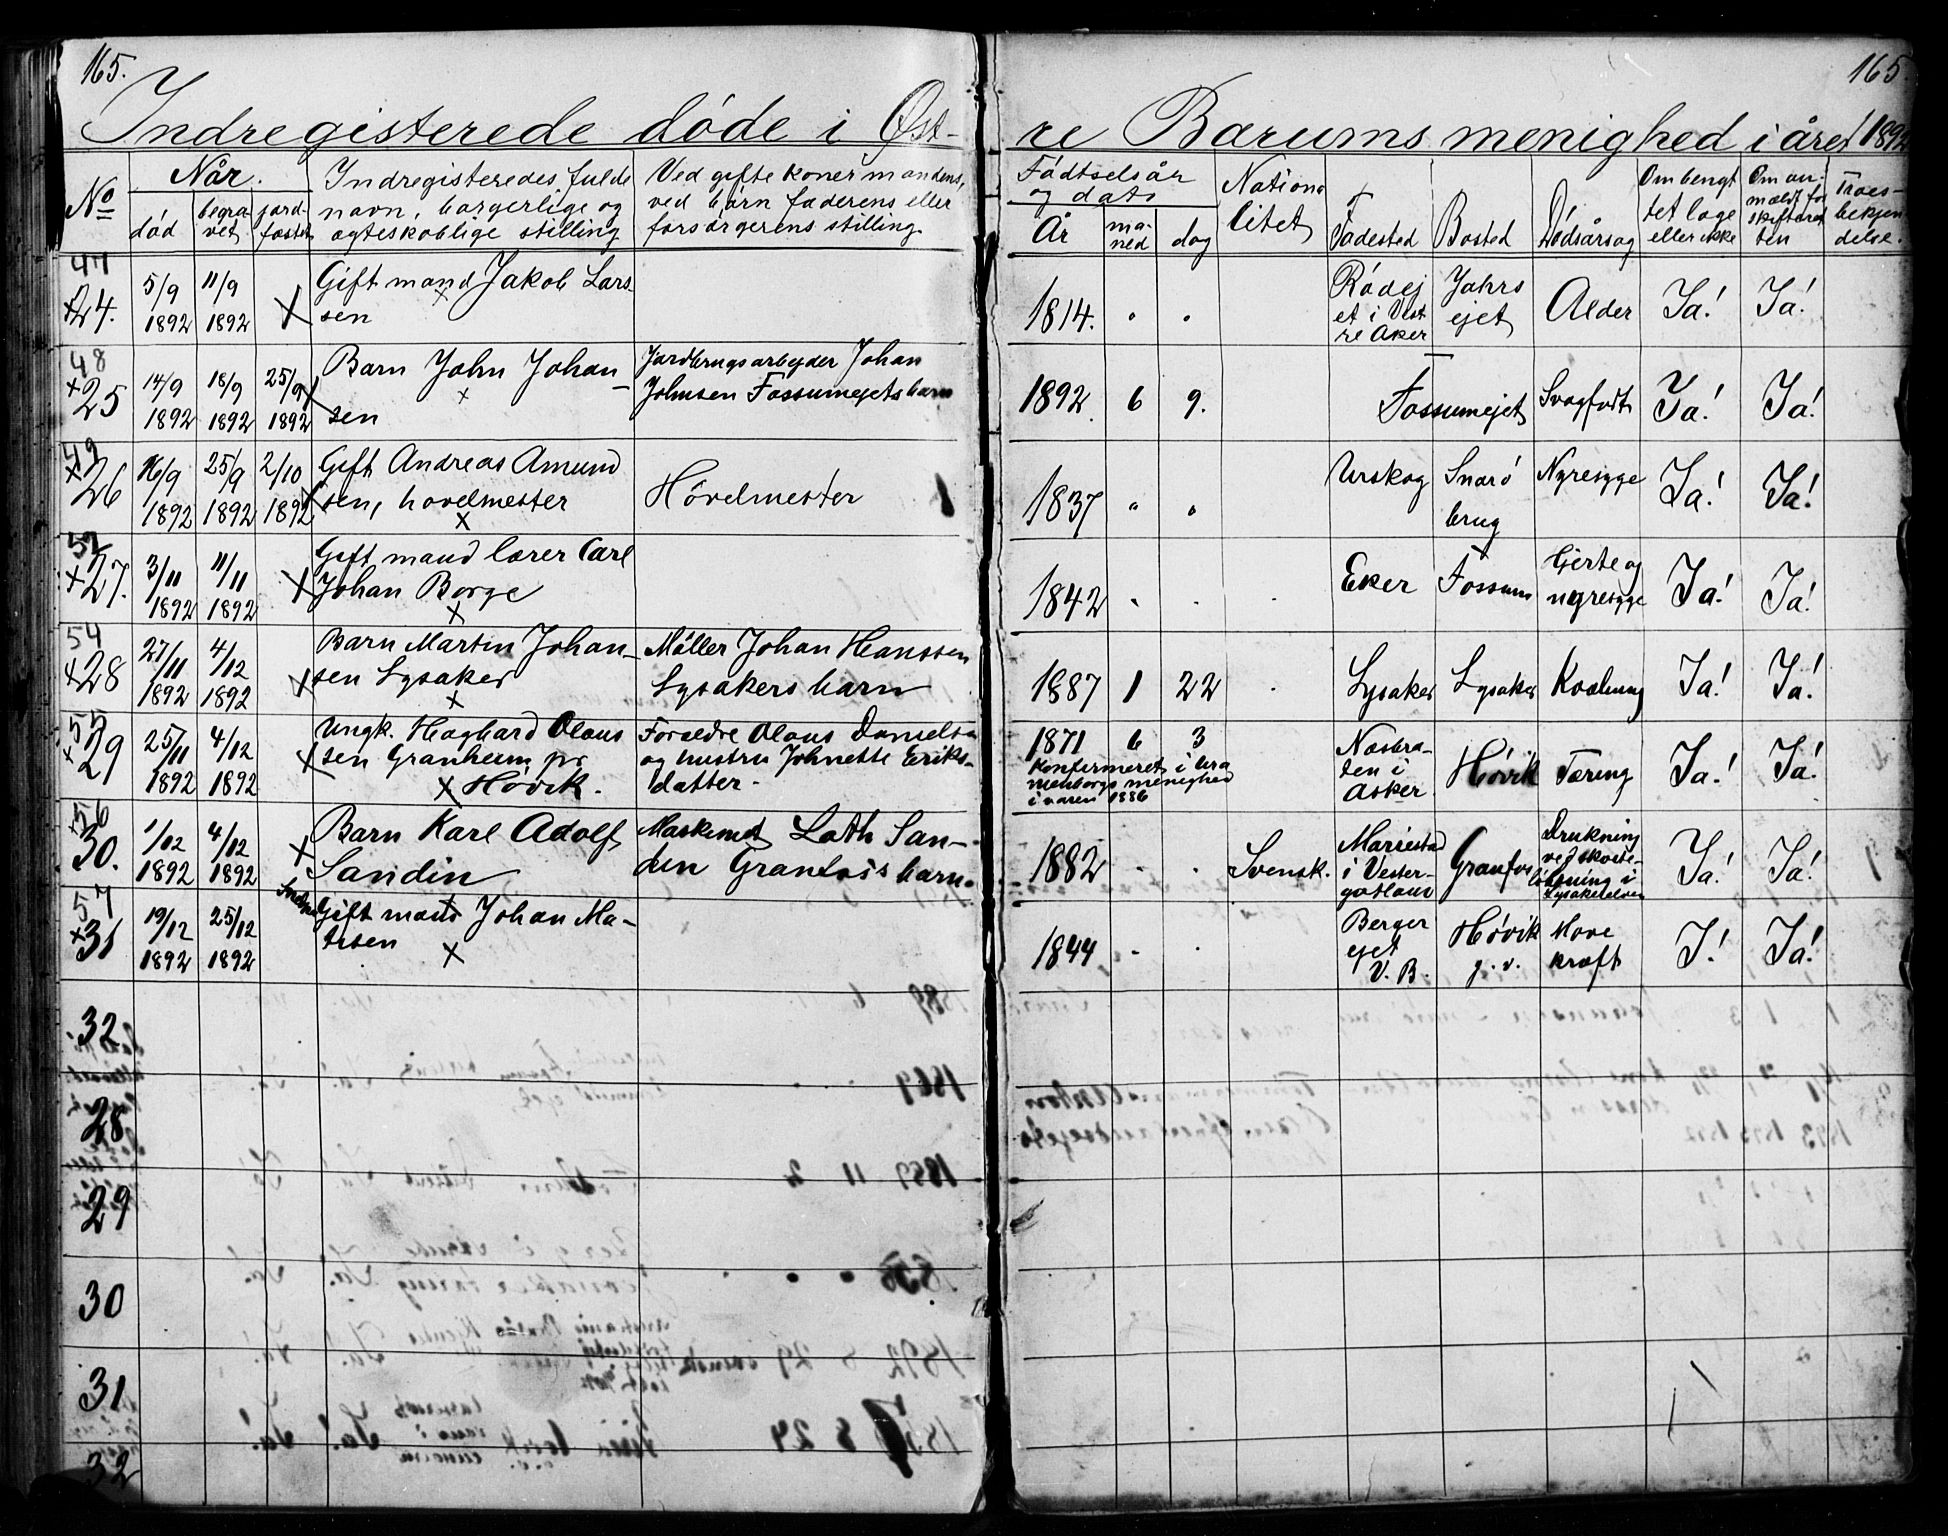 165.
165.
Indregisterede døde i Øst-
re Bærums menighed i året 1892
No
Når.
død
begra-
vet
jord-
fæstet
Indregisteredes fulde
navn, borgerlige og
ægteskablige stilling
Ved gifte koner mandens,
ved børn faderens eller
forsørgerens stilling.
Fødtselsår
og dato
År
må-
ned
dag
Nationa
litet
Fødested
Bosted
Dødsårsag
Om bengt
tet læge
eller ikke
Om an-
mældt for
skifteret
ten
Troes-
bekjen
delse.
47
24.
5/9
1892
11/9
1892
Gift mand Jakob Lars
sen
1814.
Rødej
et i Vest
re Aker
Jahrs
ejet
Alder
Ja!
Ja!
48
25
14/9
1892
18/9
1892
25/9
1892
Barn John Johan-
sen
Jordbrugsarbejder Johan
Johnsen Fossumejets barn
1892
6
9.
Fossumejet
Svagfødt
Ja!
Ja!
49
26
16/9
1892
25/9
1892
2/10
1892
Gift Andreas Amund
sen, hovelmester
Hövelmester
1837
Urskog
Snarö
brug
Nyresyge
Ja!
Ja!
52
27.
3/11
1892
11/11
1892
Gift mand lærer Carl
Johan Borge
1842
Eker
Fossum
Hjerte og
nyresyge
Ja!
Ja!
54
28
27/11
1892
4/12
1892
Barn Martin Johan-
sen Lysaker
Møller Johan Hanssen
Lysakers barn
1887
1
22
Lysaker
Lysaker
Kvælning
Ja!
Ja!
55
29
25/11
1892
4/12
1892
Ungk. Hagbard Olaus
sen Granheim pr
Høvik.
Forældre Olaus Danielsen
og hustru Johnette Eriks-
datter.
1871
6
3
Konfirmeret i Ura
nienborgs menighed
i våren 1886
Næsbra-
ten i
Asker
Høvik
Tæring
Ja!
Ja!
56
30.
1/12
1892
4/12
1892
Barn Karl Adolf
Sandin
Maskinist Loth San-
den Grantois barn.
1882
Svensk.
Mariestad
i Vester-
gøtland
Grantois
Drukning
ved skoite-
løbning i
Lysakerelven
Ja!
Ja!
57
31
19/12
1892
25/12
1892
Gift mand Johan Ma-
tisen
1844
Berger
ejet
V. B.
Høvik
j. v.
Mave
kræft
J!
Ja!
32
28
29
30
31
32